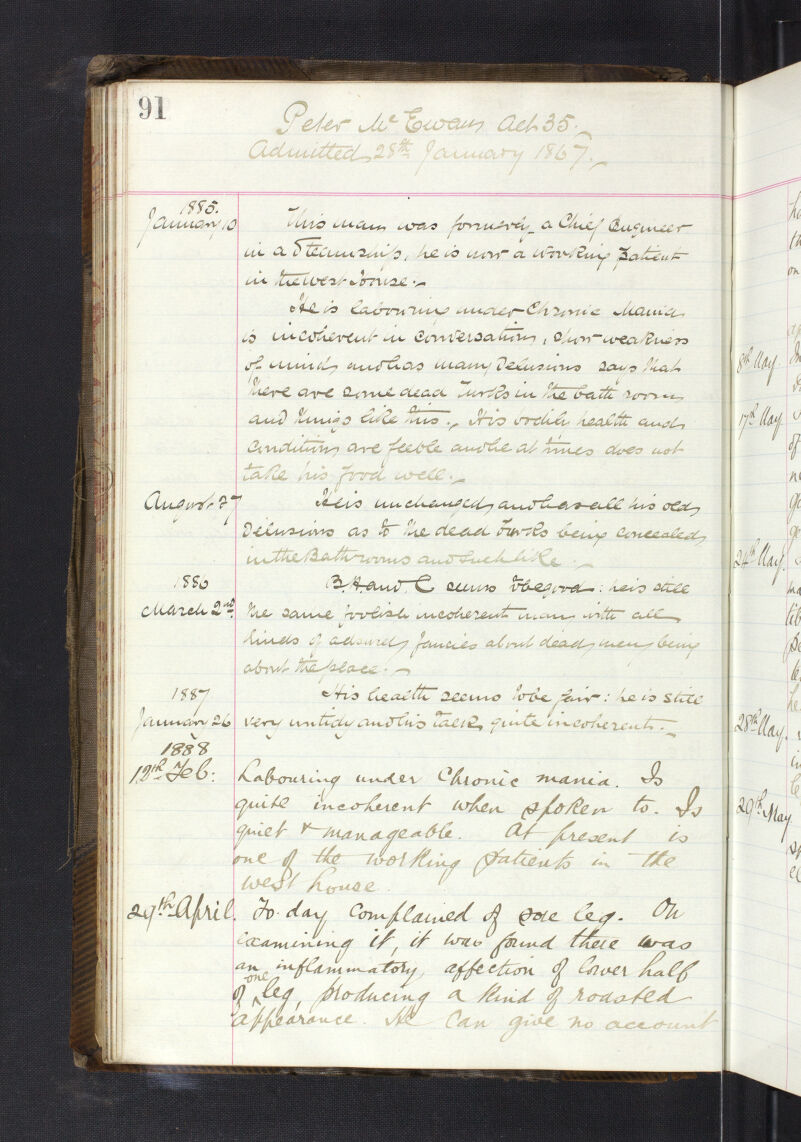 91
Peter McEwan Aet 35.
Admitted 28th January 1867.
1885.
January 10 This man was formerly a Chief Engineer
in a Steamship, he is now a working patient
in the West House.
He is labouring under Chronic Mania
is incoherent in conversation, show weakness
of mind and has many Delusions says that
there are some dead Turks in the bath room
and things like this. His bodily health and
condition are feeble and he at times does not
take his food well.
August 27 He is unchanged and has all his old
Delusions as to the dead Turks being concealed
in the Bath rooms and such like.
1886
March 2nd. B.H. and C seems to be good: he is still
the same foolish incoherent man with all
kinds of absurd fancies about dead men being
about the place.
1887
January 26 His health seems to be fair: he is still
very untidy and his talk quite incoherent.
1888
12th Feb: Labouring under Chronic mania. Is
quite incoherent when spoken to. Is
quiet & manageable. At present is
one of the working patients in the
west house.
29th April. To-day complained of sore leg. On
examining it, it was found there was
an inflammatory affection of lower half
of one leg, producing a kind of roasted
appearance. He can give no account
8th May
17th May
24th May.
28th May.
29th May